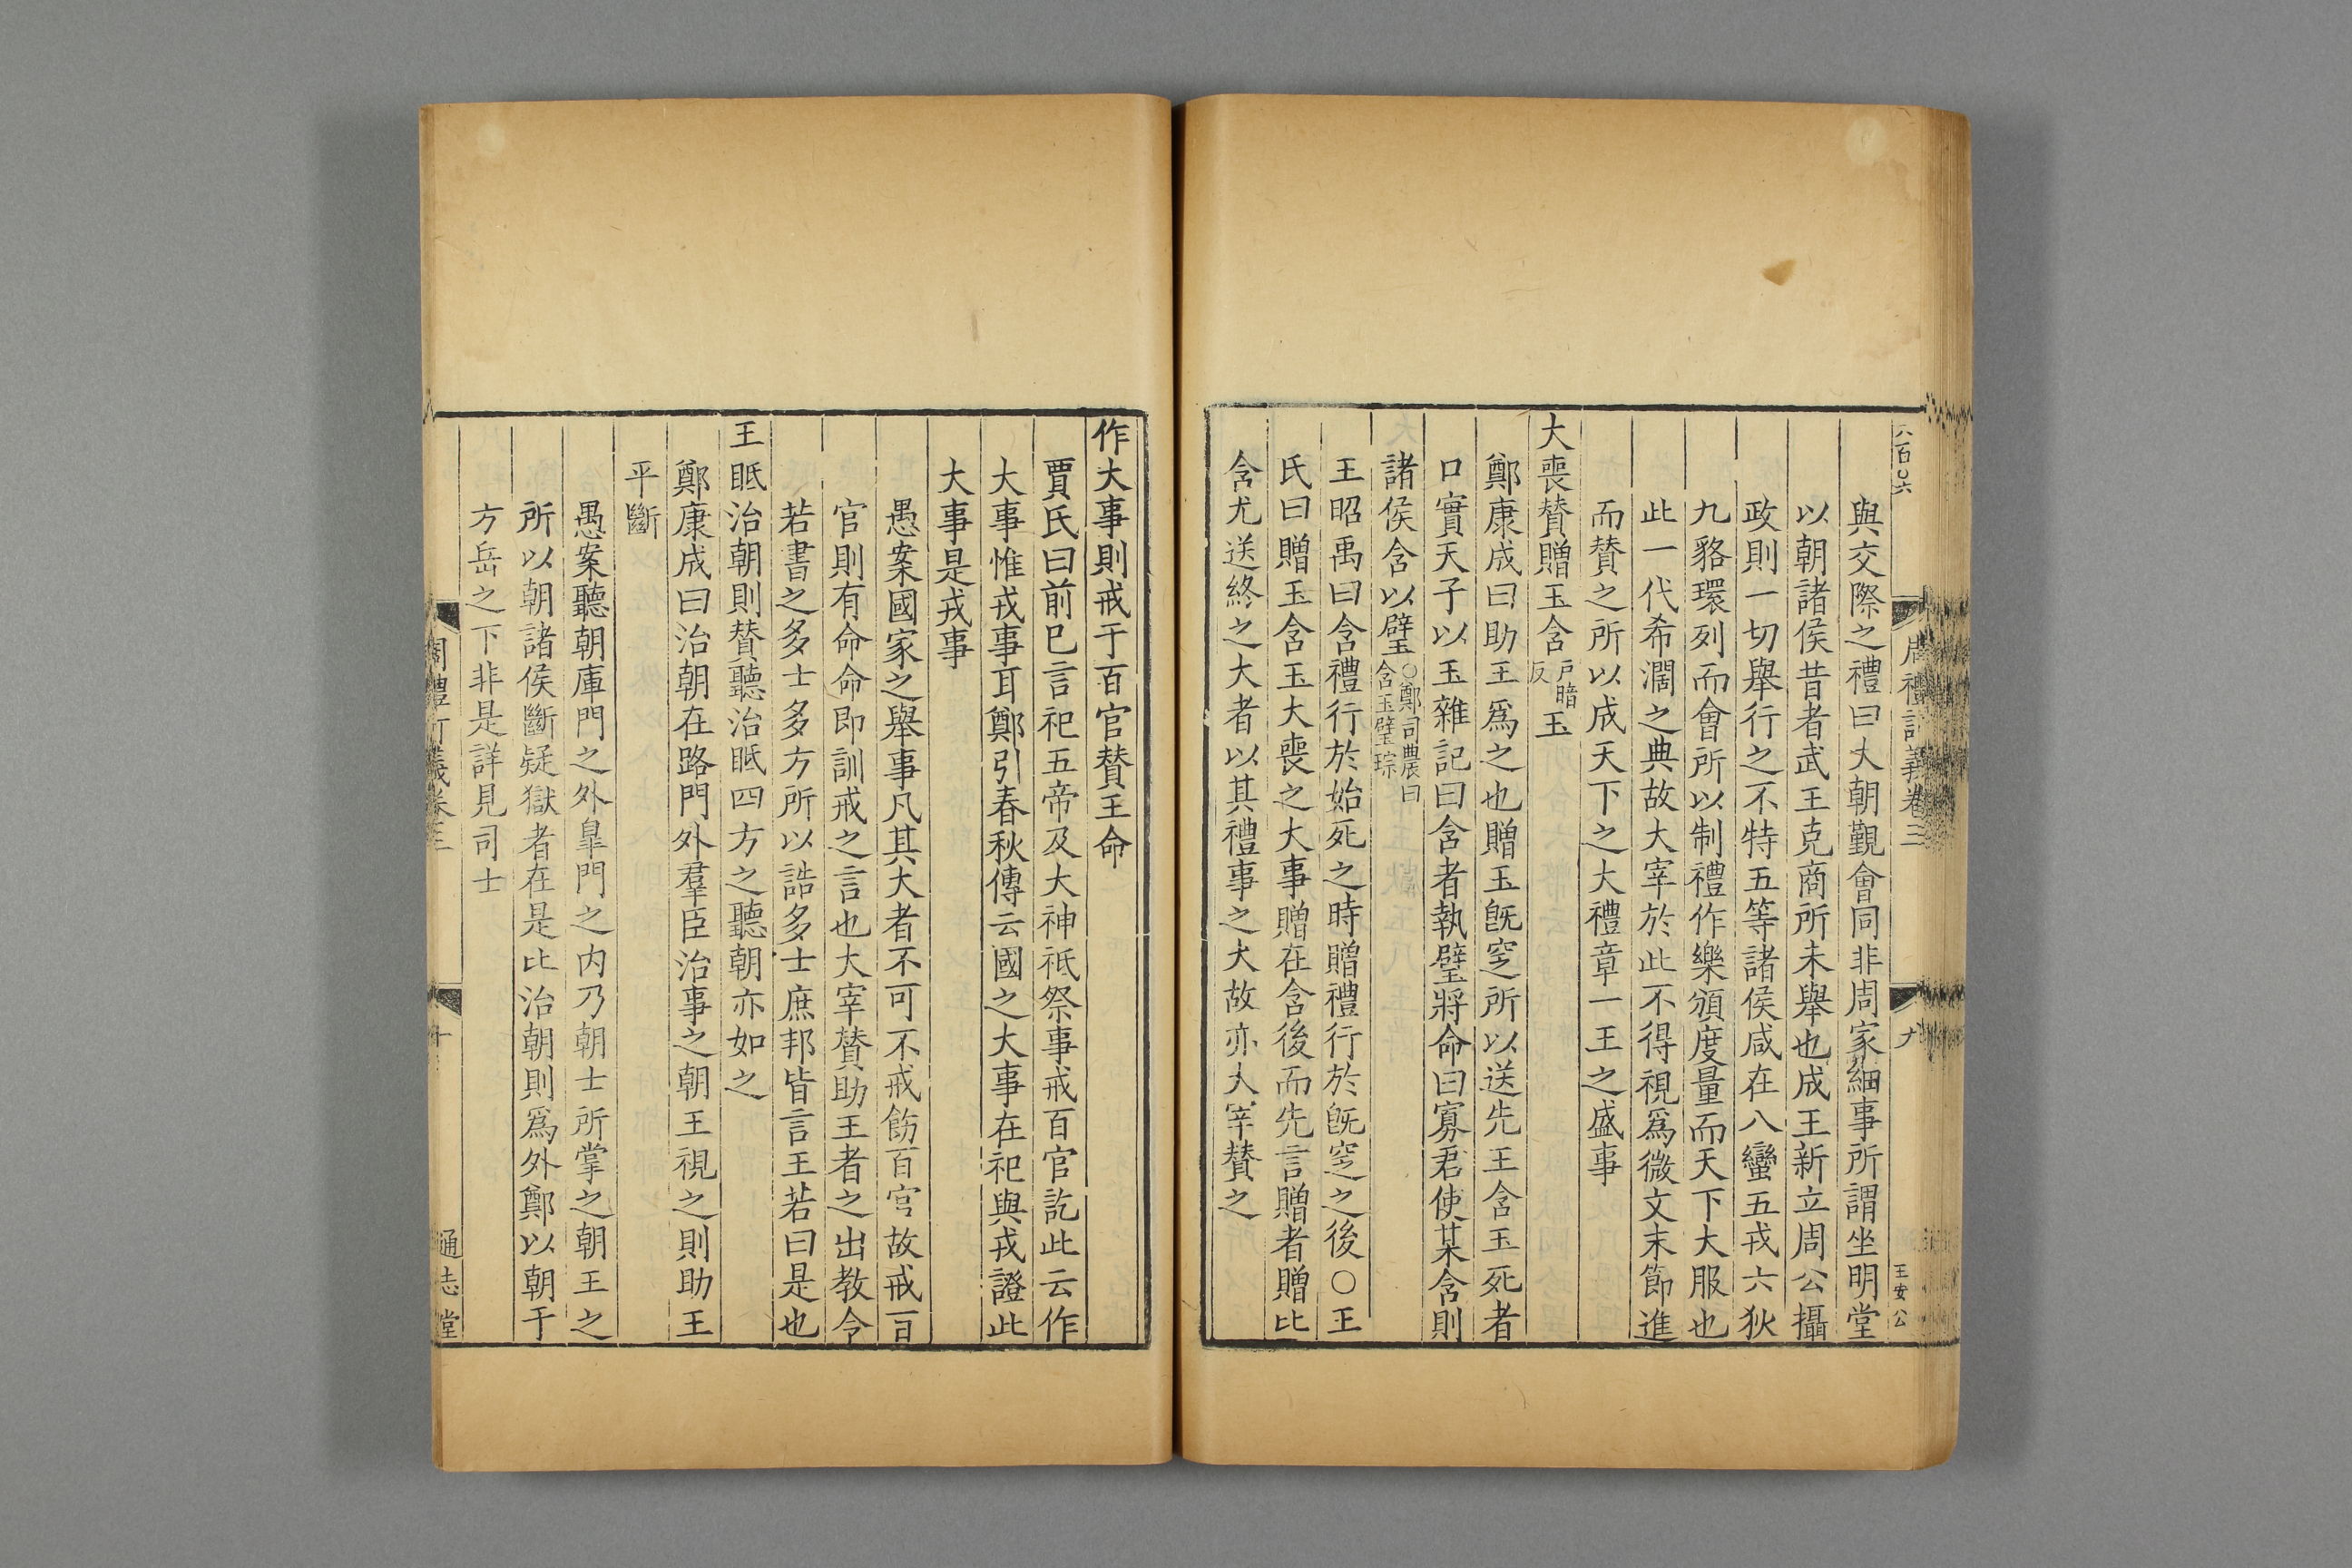 六百〇六
周禮訂義卷三
九
王安公
與交際之禮曰大朝覲會同非周家細事所謂坐明堂
以朝諸侯昔者武王克商所未舉也成王新立周公攝
政則一切舉行之不特五等諸侯咸在八蠻五戎六狄
九貉環列而會所以制禮作樂頒度量而天下大服也
此一代希濶之典故大宰於此不得視爲微文末節進
而賛之所以成天下之大禮章一王之盛事
大喪賛贈玉含戸暗反玉
鄭康成曰助王爲之也贈玉旣窆所以送先王含玉死者
口實天子以玉雜記曰含者執璧將命曰寡君使某含則
諸侯含以璧○鄭司農曰含玉璧琮
王昭禹曰含禮行於始死之時贈禮行於旣窆之後○王
氏曰贈玉含玉大喪之大事贈在含後而先言贈者贈比
含尤送終之大者以其禮事之大故亦大宰賛之
作大事則戒于百官賛王命
賈氏曰前巳言祀五帝及大神祗祭事戒百官訖此云作
大事惟戎事耳鄭引春秋傳云國之大事在祀與戎證此
大事是戎事
愚案國家之舉事凡其大者不可不戒飭百官故戒百
官則有命命即訓戒之言也大宰賛助王者之出教令
若書之多士多方所以誥多士庶邦皆言王若曰是也
王眂治朝則賛聽治眂四方之聽朝亦如之
鄭康成曰治朝在路門外羣臣治事之朝王視之則助王
平斷
愚案聽朝庫門之外臯門之内乃朝士所掌之朝王之
所以朝諸侯斷疑獄者在是比治朝則爲外鄭以朝于
方岳之下非是詳見司士
周禮訂義卷三
十
通志堂